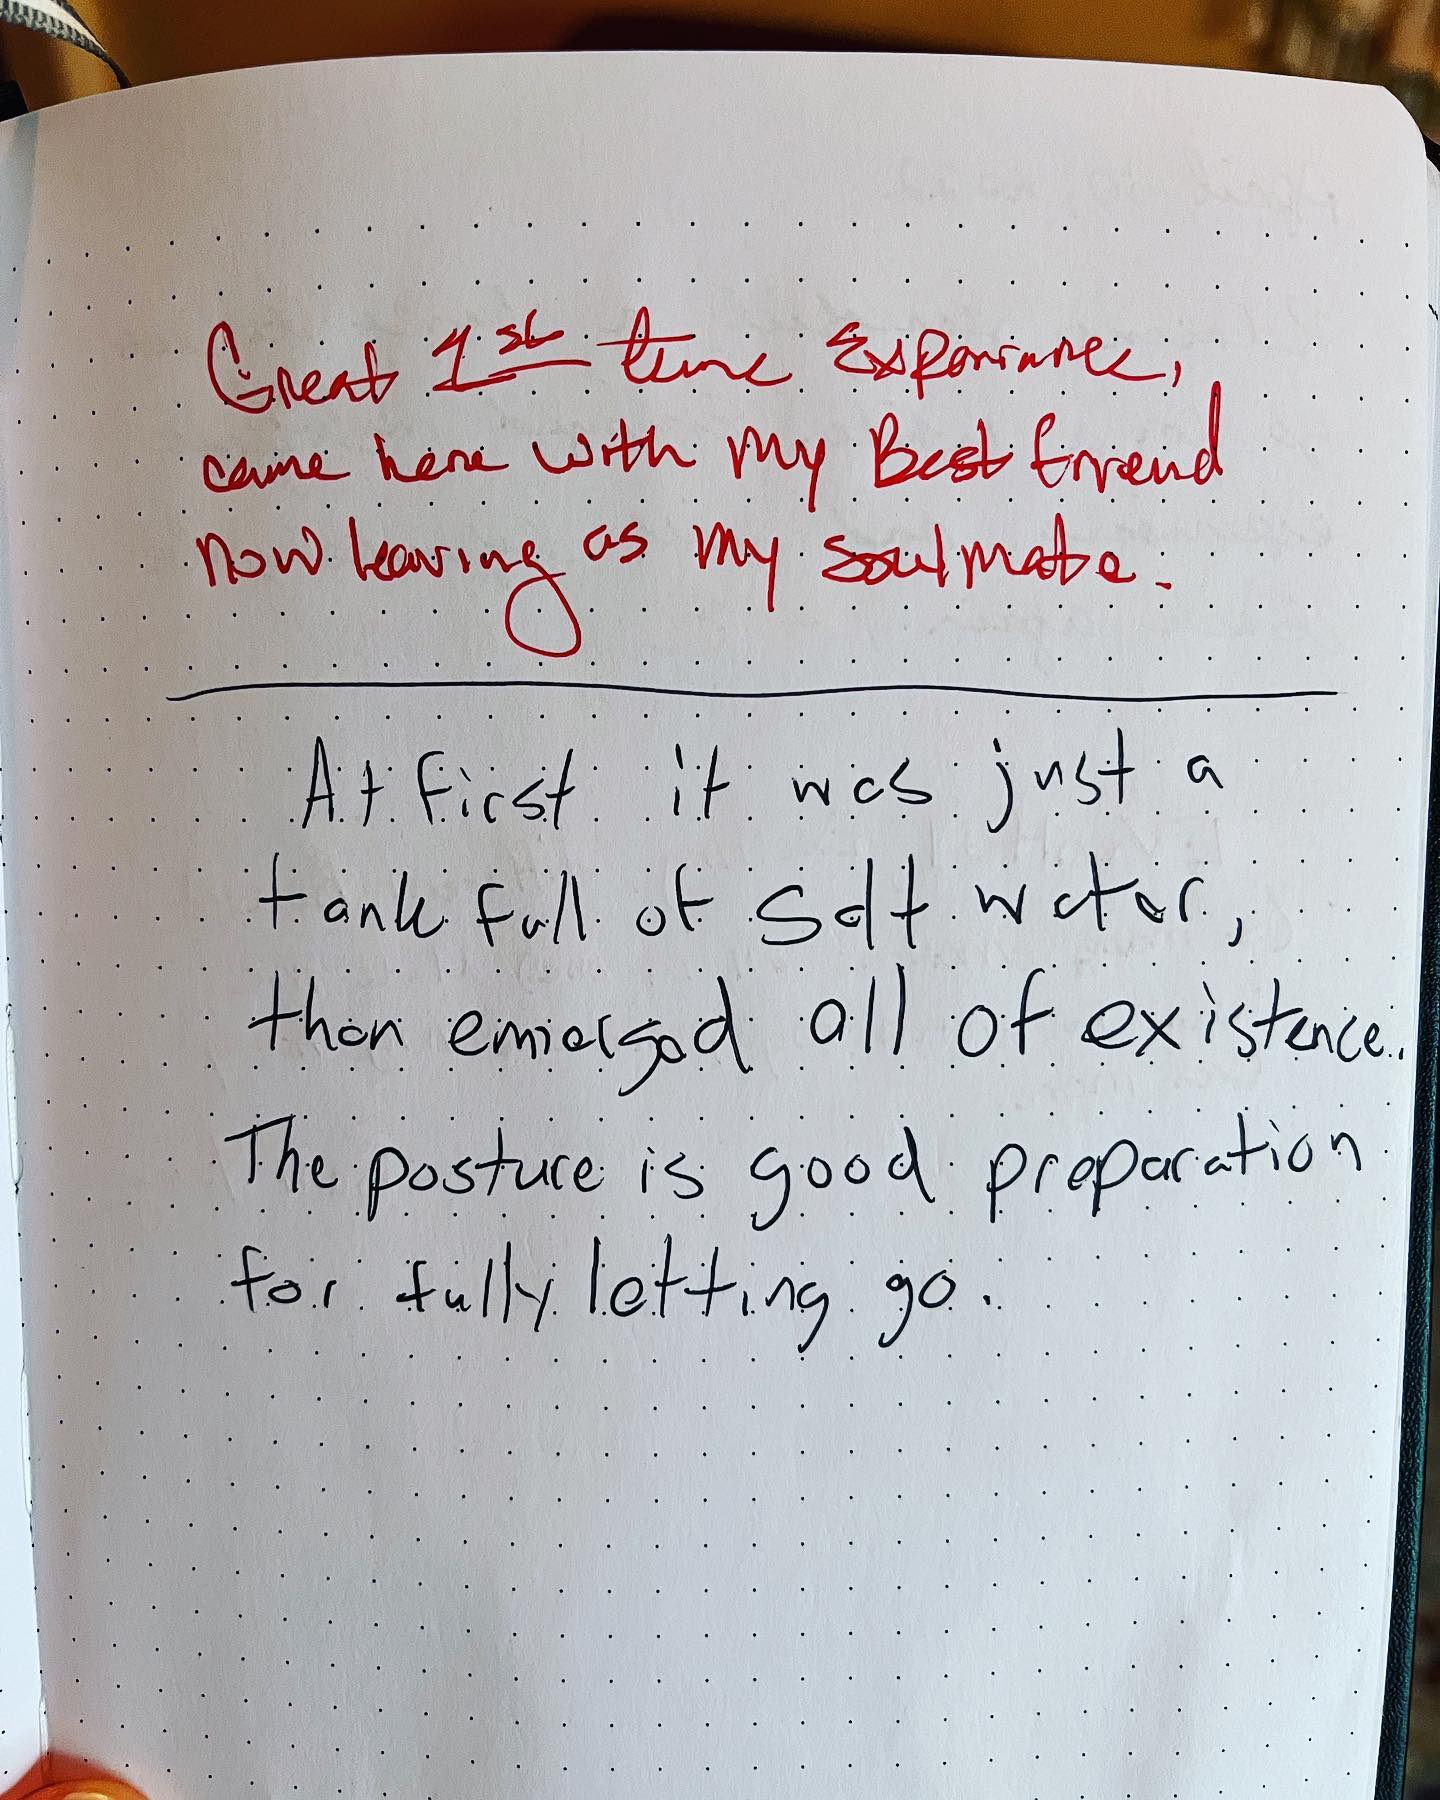 Great 1st time Experience,
came here with my Best friend
now leaving as my soulmate.
At first it was just a
tank full of salt water,
then emerged all of existence.
The posture is good preparation
for fully letting go.